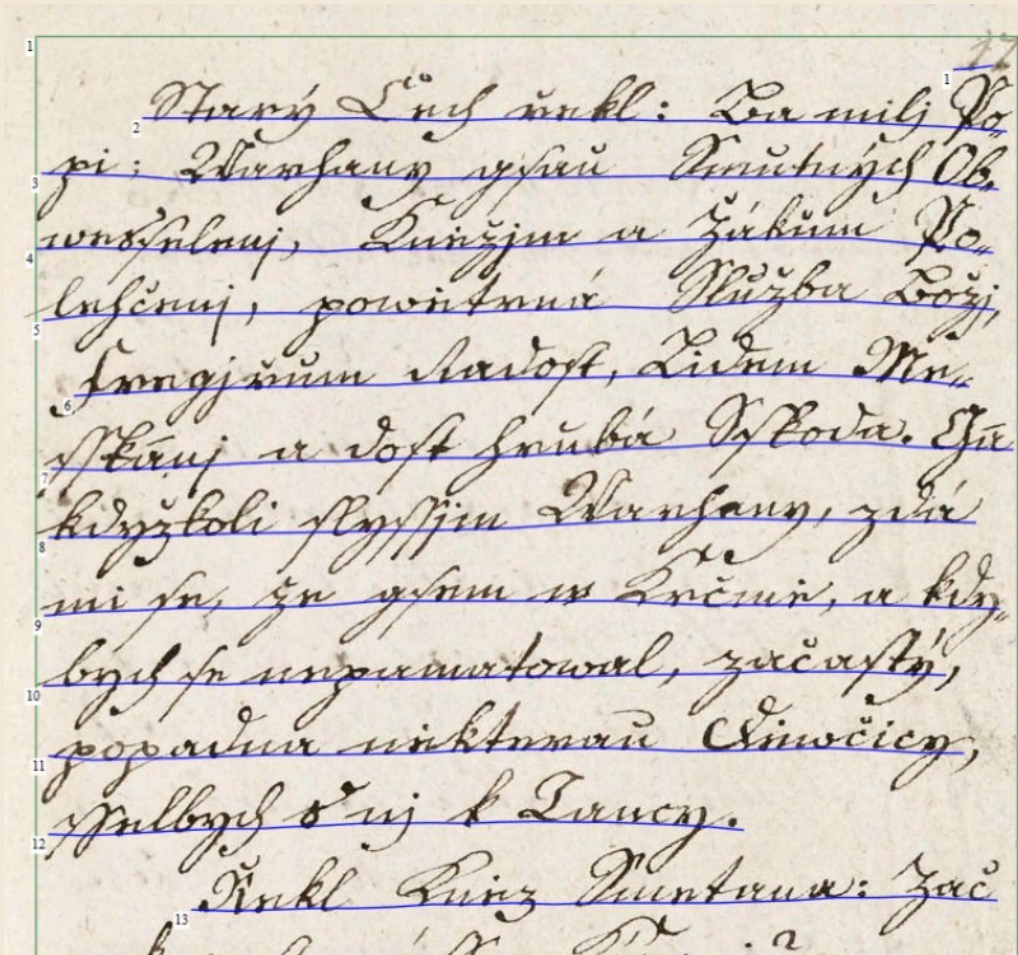 17
Starý Čech řekl: Ba milj Po-
pi: Warhany gsau Smutných Ob-
wesselenj, Kněžjm a Žákům Po-
lehčenj, powětrná Služba Božj,
Fregjřům Radost, Lidem Me-
sskánj a dost hrubá Sskoda. Gá
kdyžkoli slyssjm Warhany, zdá
mi se, že gsem w Krčmě, a kdy-
bych se nepamatowal, začastý,
popadna některau Ženočicy,
sselbych s nj k Tancy.
Řekl Kněz Smetana: Zač